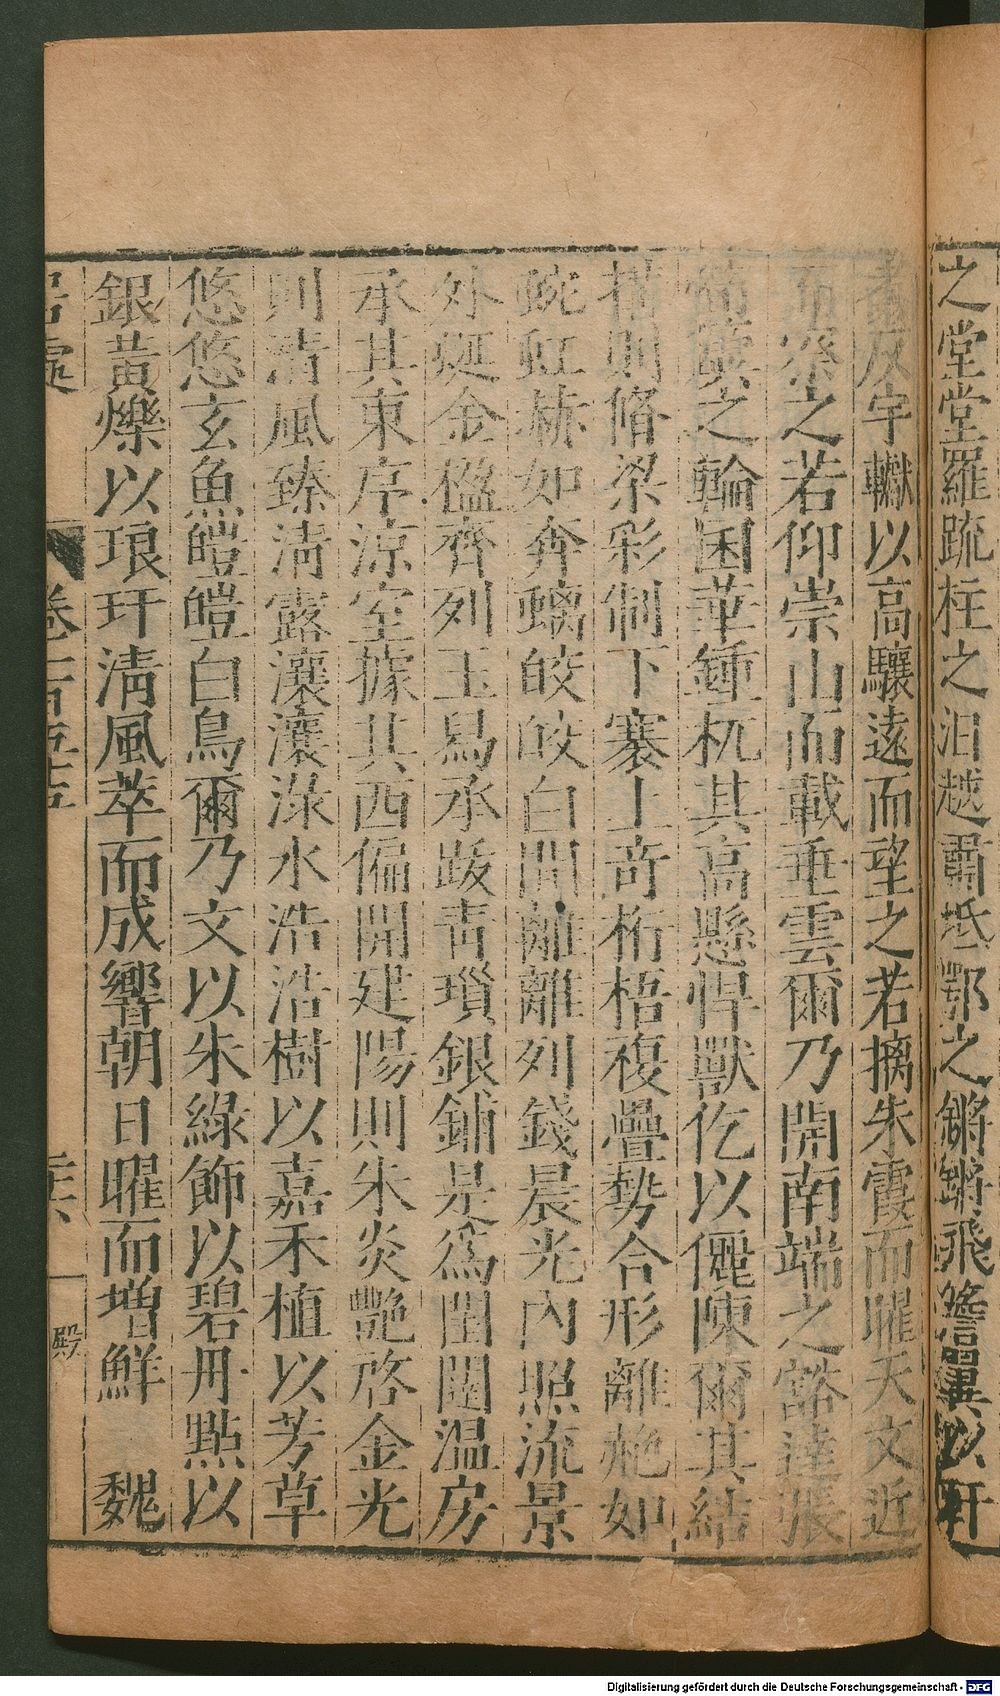 之堂堂羅疏柱之汩越肅坻鄂之鏘鏘飛簷翼以軒
翥反宇轍以高驤遠而望之若摛朱霞而曜天文近
而察之若仰崇山而載垂雲爾乃開南端之豁達張
筍簴之輪囷華鍾杌其高懸悍獸仡以儷陳爾其結
構則脩梁彩制下褰上奇桁梧複疊勢合形離㷟如
宛虹赫如奔螭皎皎白間離離列錢晨光內照流景
外㢟金楹齊列玉舄承跋青瑣銀鋪是爲閨闥温房
承其東序涼室據其西偏開建陽則朱炎艷啓金光
則清風臻清露瀼瀼淥水浩浩樹以嘉禾植以芳草
悠悠玄魚皚皚白鳥爾乃文以朱綠飾以碧丹點以
銀黃爍以琅玕清風萃而成響朝日曜而増鮮 魏
居處 卷一百五十五 殿
Digitalisierung gefördert durch die Deutsche Forschungsgemeinschaft - DFG